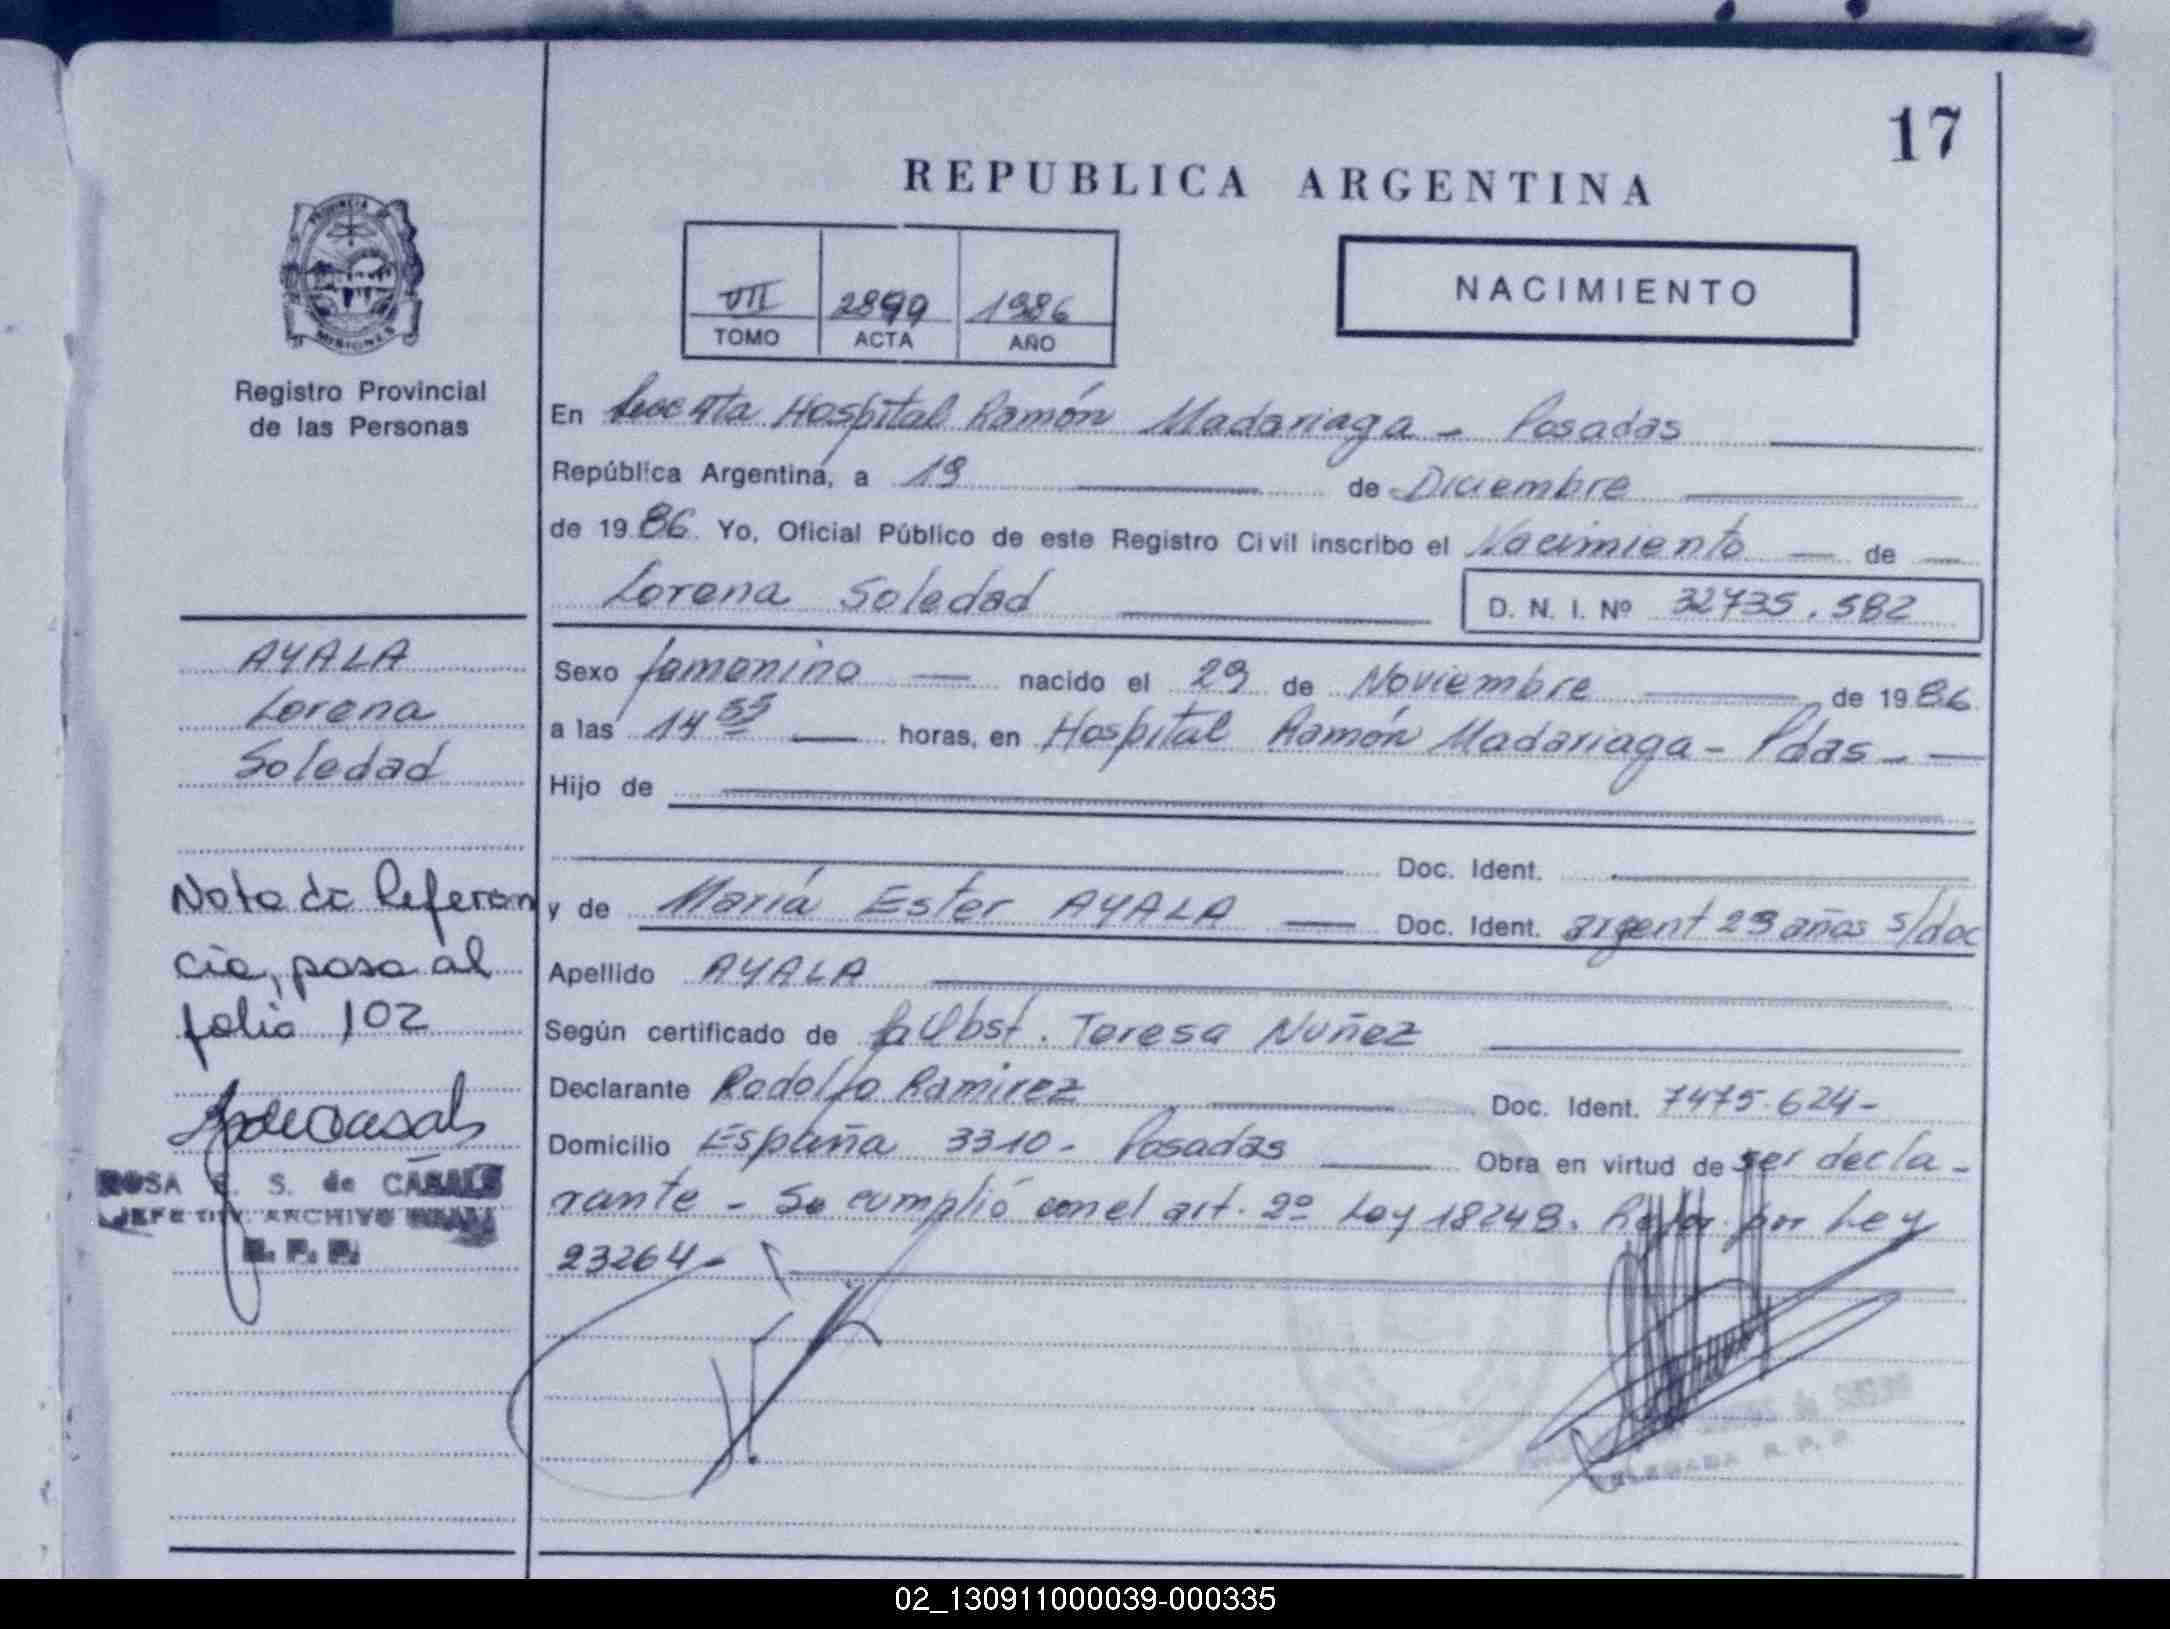 17
REPUBLICA ARGENTINA
PROVINCIA DE
MISIONES
Registro Provincial
de las Personas
VII 2899 1986
TOMO ACTA AÑO
NACIMIENTO
En Secc 4ta Hospital Ramón Madariaga - Posadas
República Argentina, a 19 de Diciembre
de 1986. Yo, Oficial Público de este Registro Civil inscribo el Nacimiento de
Lorena Soledad D. N. I. Nº 32735.582
Sexo femenino nacido el 29 de Noviembre de 1986
a las 14 55 horas, en Hospital Ramón Madariaga - Pdas -
Hijo de
Doc. Ident.
y de María Ester AYALA Doc. Ident. argent 29 años s/doc
Apellido AYALA
Según certificado de la Obst. Teresa Nuñez
Declarante Rodolfo Ramirez Doc. Ident. 7475.624-
Domicilio España 3310 - Posadas Obra en virtud de ser decla-
rante - Se cumplió con el art. 2º Ley 18248. Refor. por Ley
23264-
AYALA
Lorena
Soledad
Nota de Referen
cia, pasa al
folio 102
ROSA S. de CASALS
JEFE DIV. ARCHIVO
R. P. P.
DELEGADA R. P. P.
02_130911000039-000335